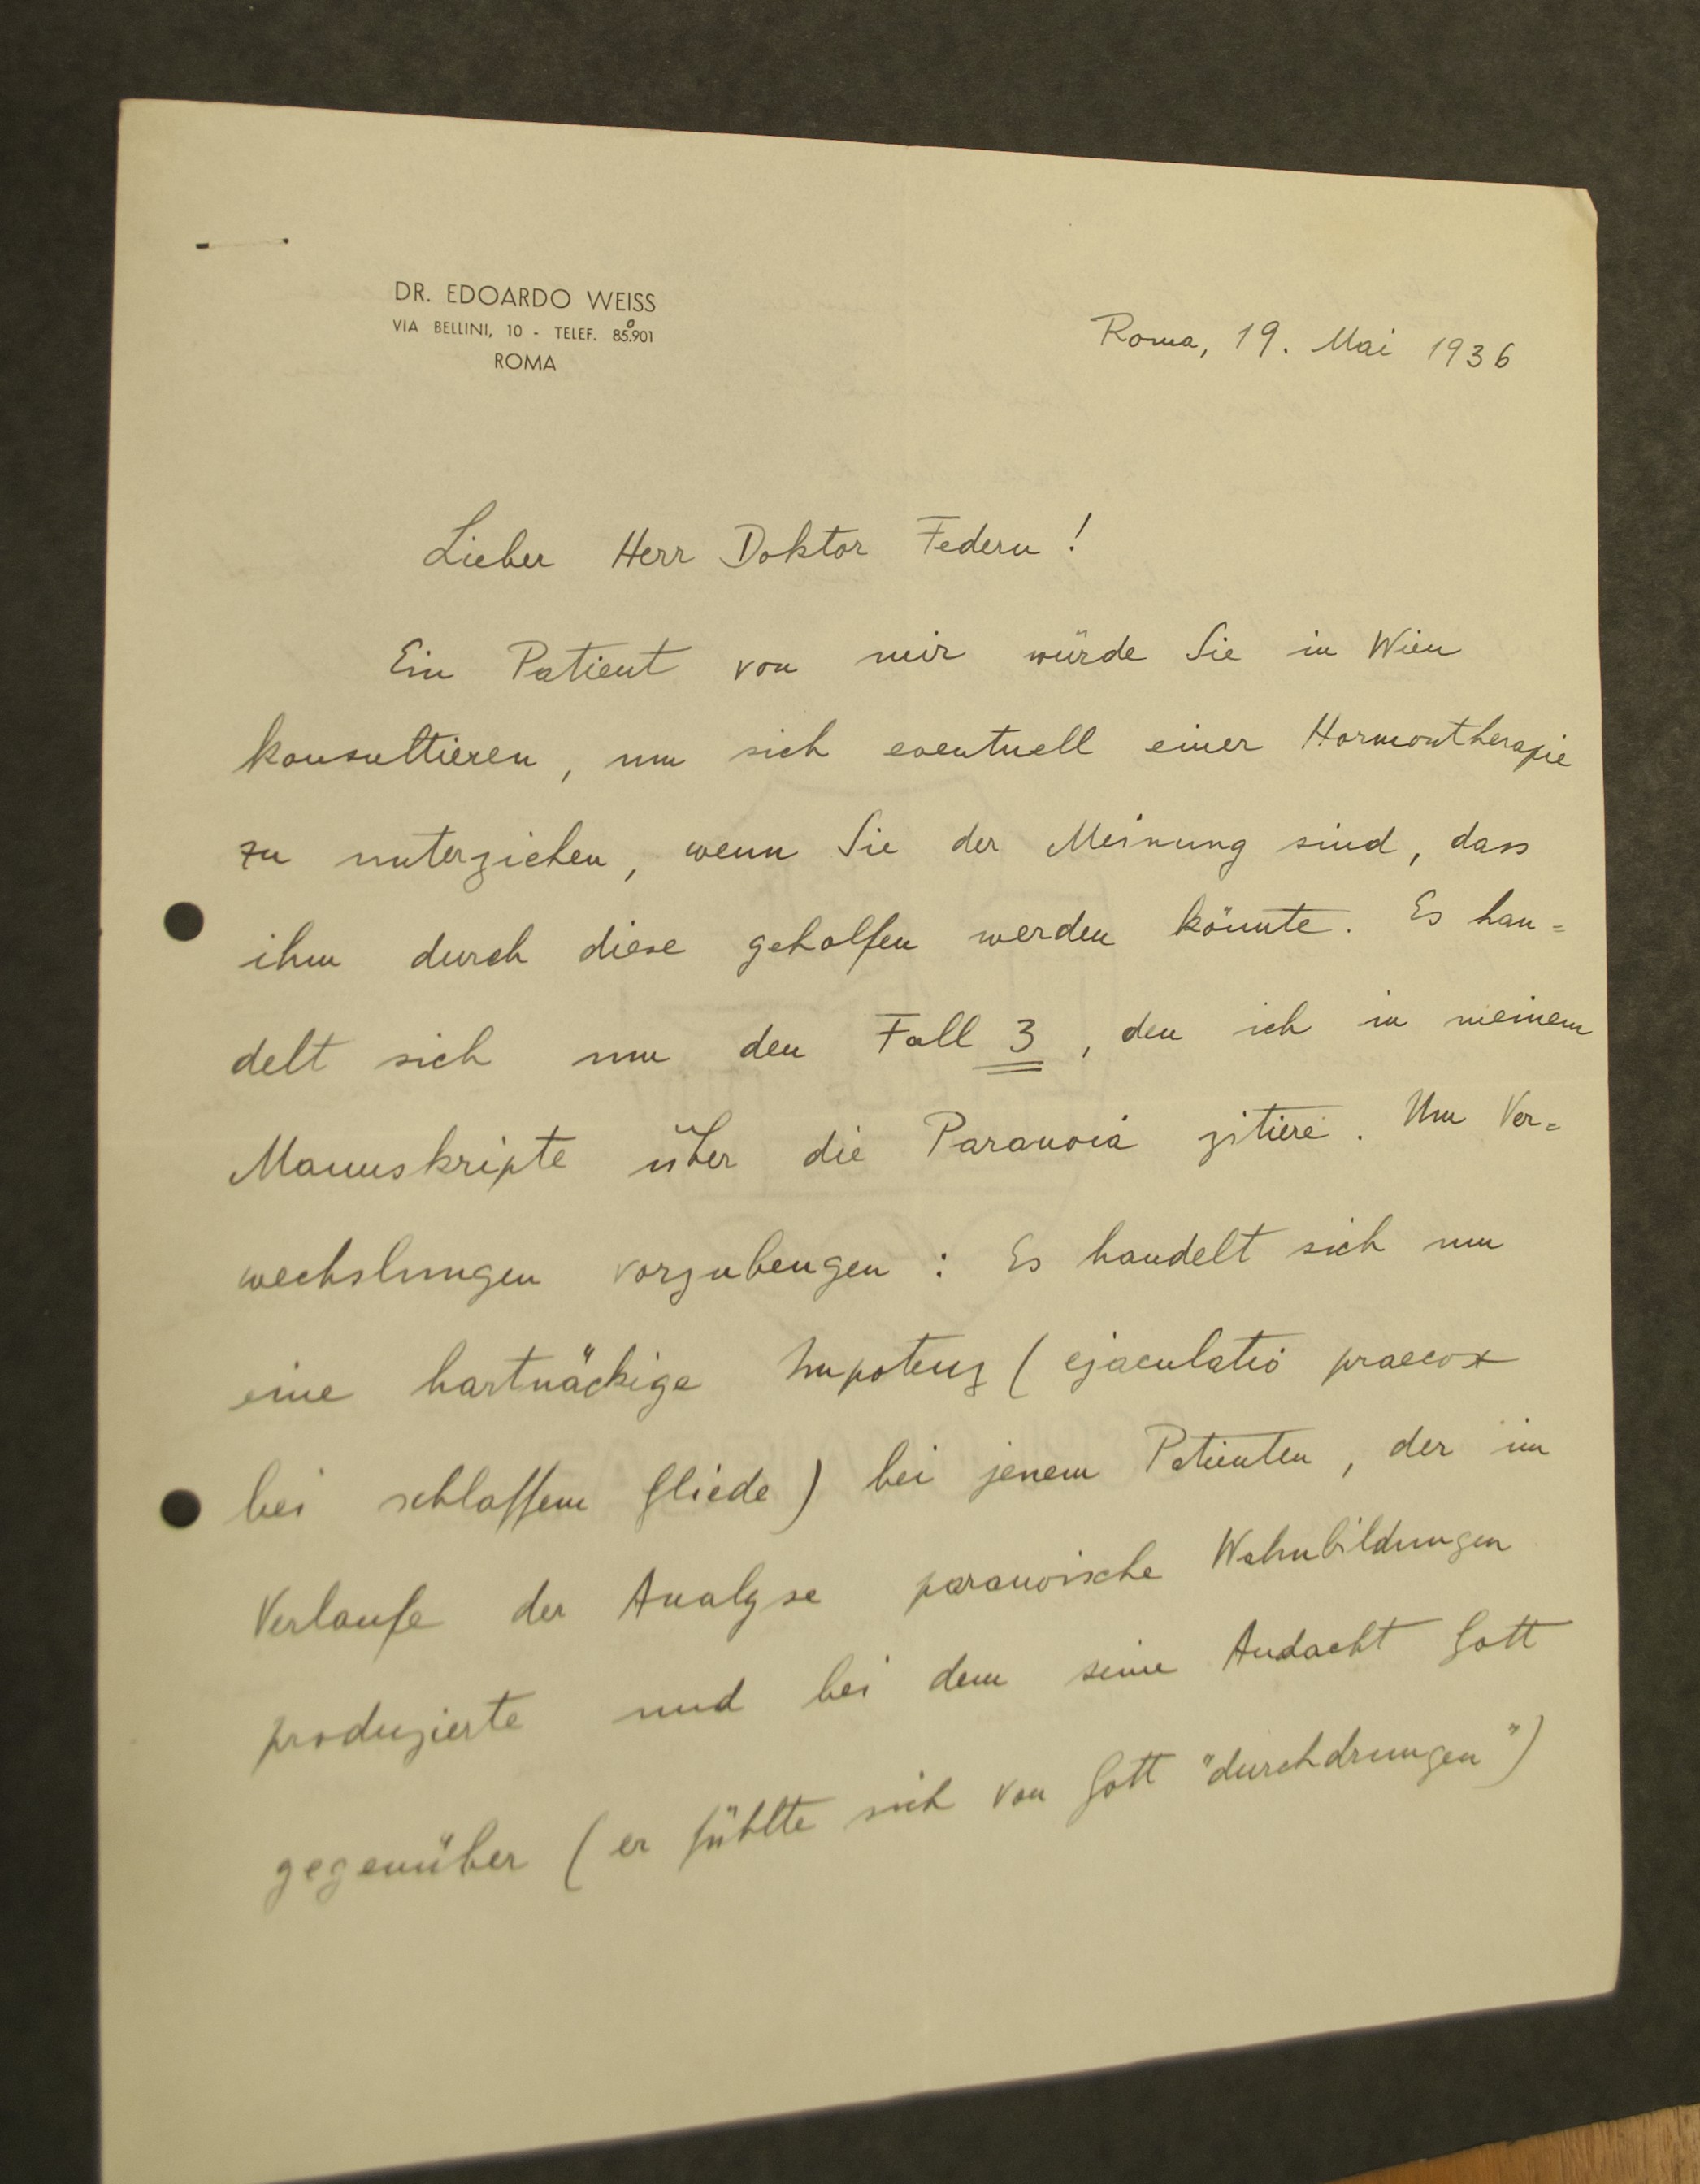 DR. EDOARDO WEISS
VIA BELLINI, 10 - TELEF. 85.901
ROMA
Roma, 19. Mai 1936
Lieber Herr Doktor Federn!
Ein Patient von mir würde Sie in Wien
konsultieren, um sich eventuell einer Hormontherapie
zu unterziehen, wenn Sie der Meinung sind, dass
ihm durch diese geholfen werden könnte. Es han=
delt sich um den Fall 3, den ich in meinem
Manuskripte über die Paranoia zitiere. Um Ver=
wechslungen vorzubeugen: Es handelt sich um
eine hartnäckige Impotenz (ejaculatio praecox
bei schlaffem Gliede) bei jenem Patienten, der im
Verlaufe der Analyse paranoische Wahnbildungen
produzierte und bei dem seine Andacht Gott
gegenüber (er fühlte sich von Gott "durchdrungen")